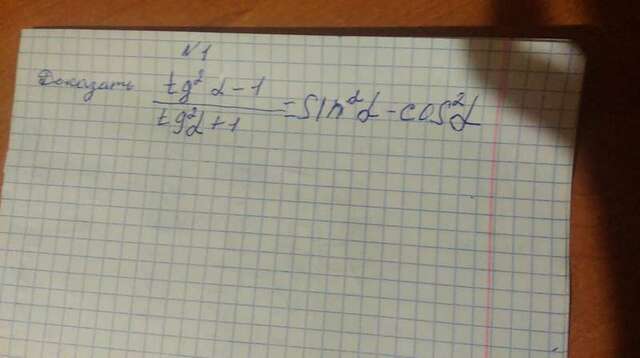 N1
Доказать tg² α - 1 / tg² α + 1 = sin² α - cos² α